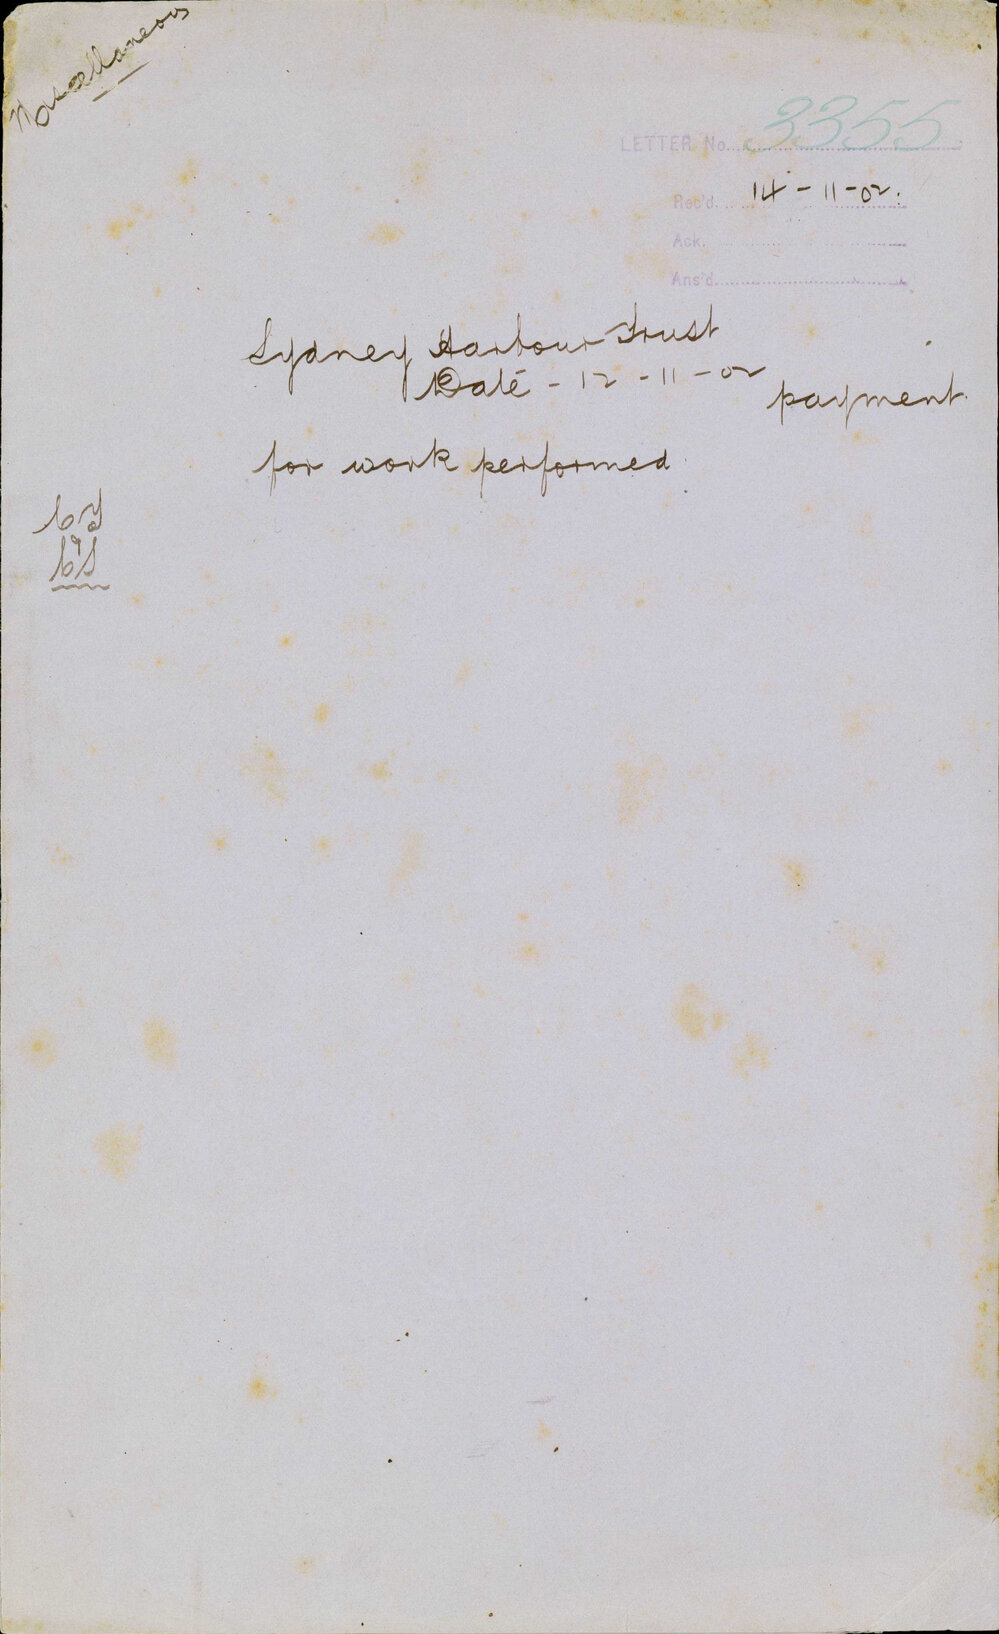 Miscellaneous
LETTER No. 3355
Rec'd. 14-11-02.
Ack.
Ans'd.
Sydney Harbour Trust
Date - 12-11-02
payment
for work performed